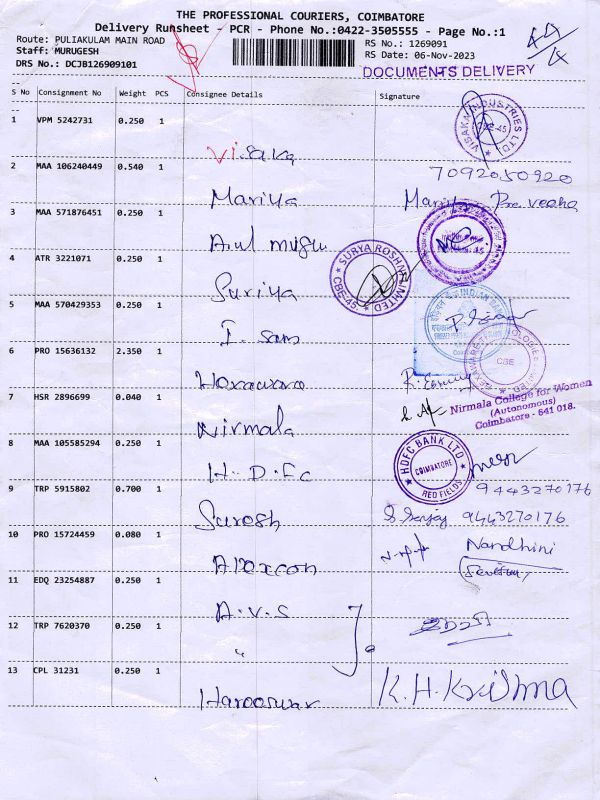 THE PROFESSIONAL COURIERS, COIMBATORE
Delivery Runsheet - PCR - Phone No.:0422-3505555 - Page No.:1
Route: PULIAKULAM MAIN ROAD
Staff: MURUGESH
DRS No.: DCJB126909101
RS No.: 1269091
RS Date: 06-Nov-2023
DOCUMENTS DELIVERY
S No Consignment No Weight PCS Consignee Details Signature
1 VPM 5242731 0.250 1
Visaka
VISAKA INDUSTRIES LTD CBE-45
2 MAA 106240449 0.540 1
7092050920
Mariya
3 MAA 571876451 0.250 1
Arul
4 ATR 3221071 0.250 1
SURYA ROSHNI LIMITED CBE-45
Suriya
5 MAA 570429353 0.250 1
INDIAN BANK
I. sam
6 PRO 15636132 2.350 1
CBE
7 HSR 2896699 0.040 1
Nirmala College for Women
(Autonomous)
Coimbatore - 641 018.
Nirmala
8 MAA 105585294 0.250 1
HDFC BANK LTD COIMBATORE RED FIELDS
H.D.F.C
9 TRP 5915802 0.700 1
9443270176
Suresh
9443270176
10 PRO 15724459 0.080 1
Nandhini
11 EDQ 23254887 0.250 1
A.V.S
12 TRP 7620370 0.250 1
"
13 CPL 31231 0.250 1
K.H.Krishna